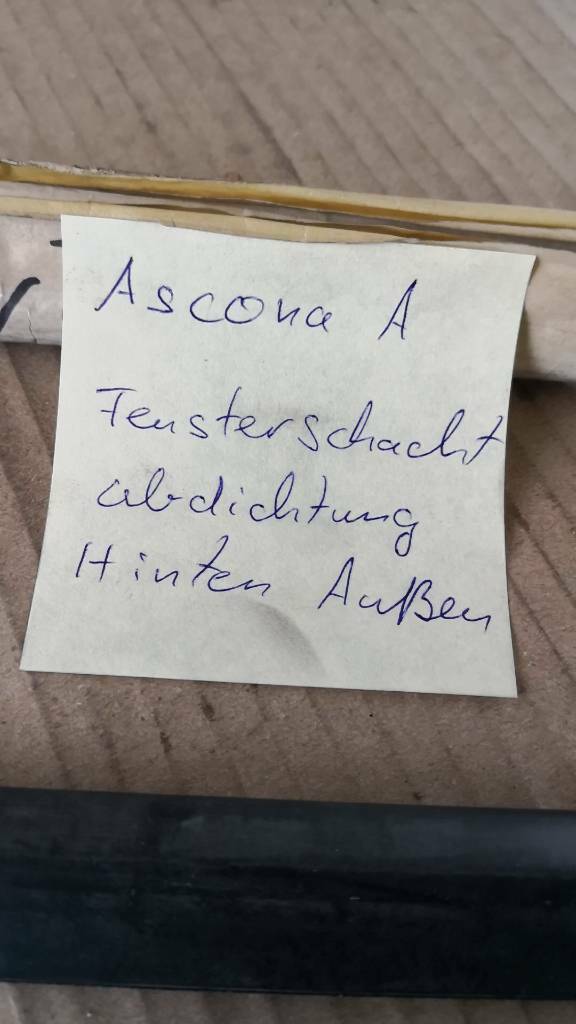 Ascona A
Fensterschacht
abdichtung
Hinten Außen